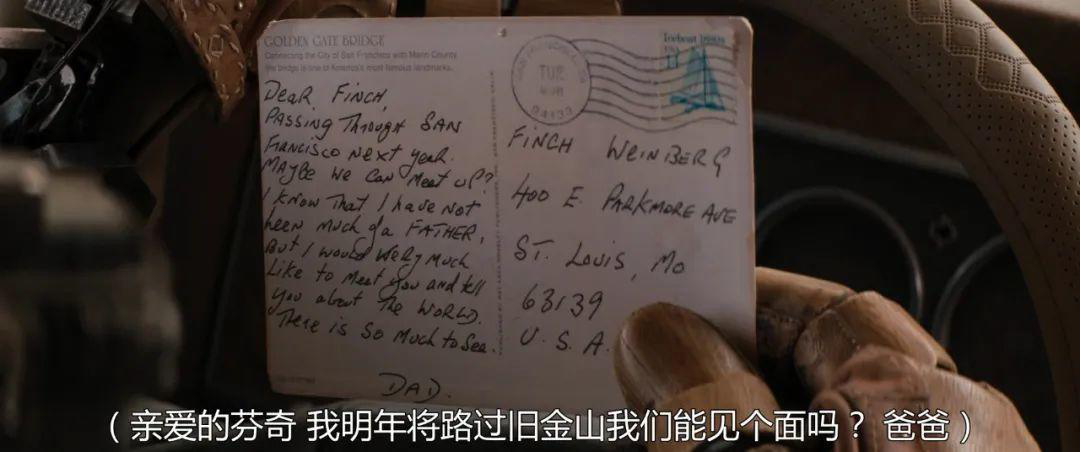 GOLDEN GATE BRIDGE
Connecting the City of San Francisco with Marin County
the bridge is one of America's most famous landmarks.
DEAR FINCH,
PASSING THROUGH SAN
FRANCISCO NEXT YEAR.
MAYBE WE CAN MEET UP?
I KNOW THAT I have NOT
been much of a FATHER,
But I would very much
Like to Meet you and tell
you about THE WORLD.
There is so Much to See.
DAD.
Iceboat 1880s
USA
TUE
94133
FINCH WEINBERG
400 E. PARKMORE AVE
ST. LOUIS, MO
63139
U. S. A.
(亲爱的芬奇 我明年将路过旧金山我们能见个面吗? 爸爸)